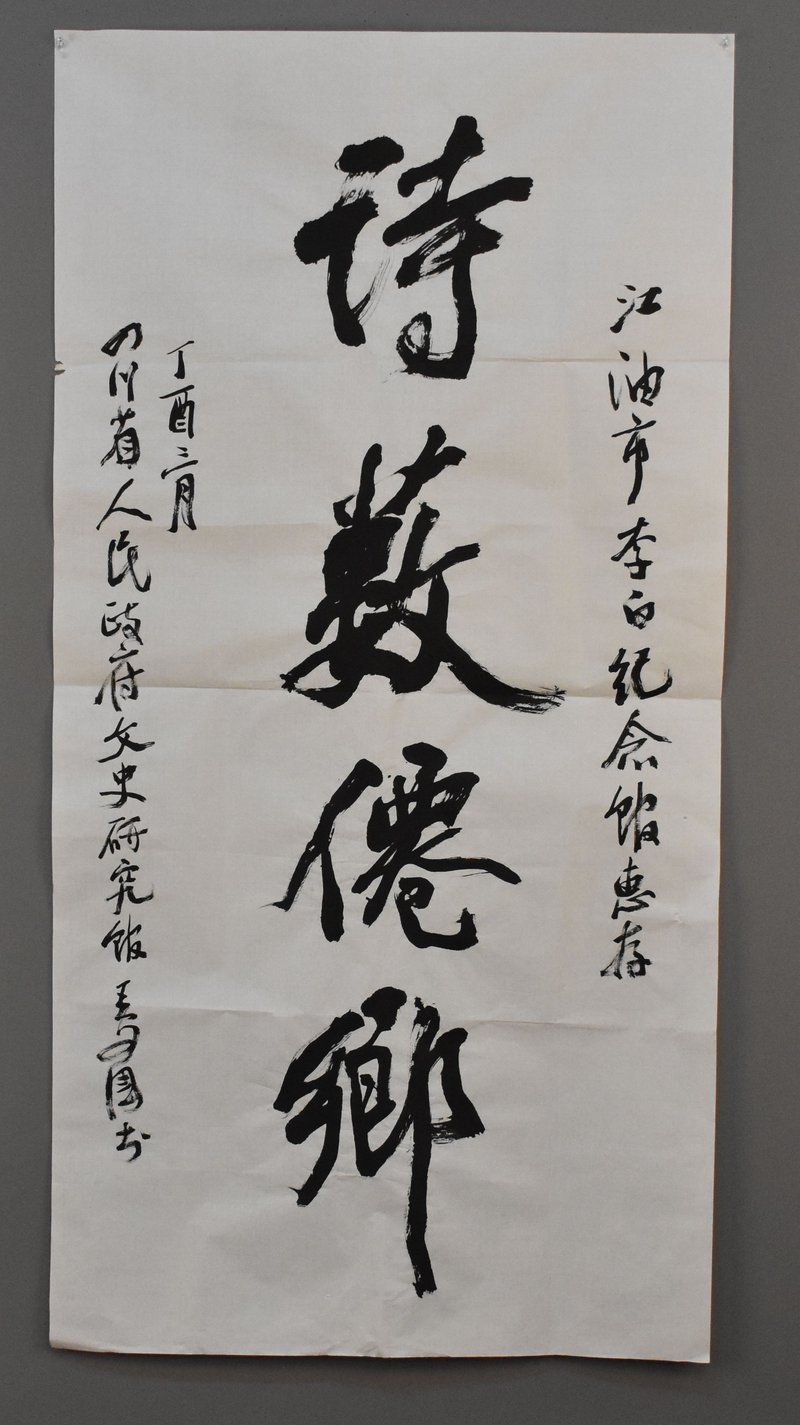 江油市李白纪念馆惠存
詩薮僊鄉
丁酉三月
四川省人民政府文史研究馆 王 国 书